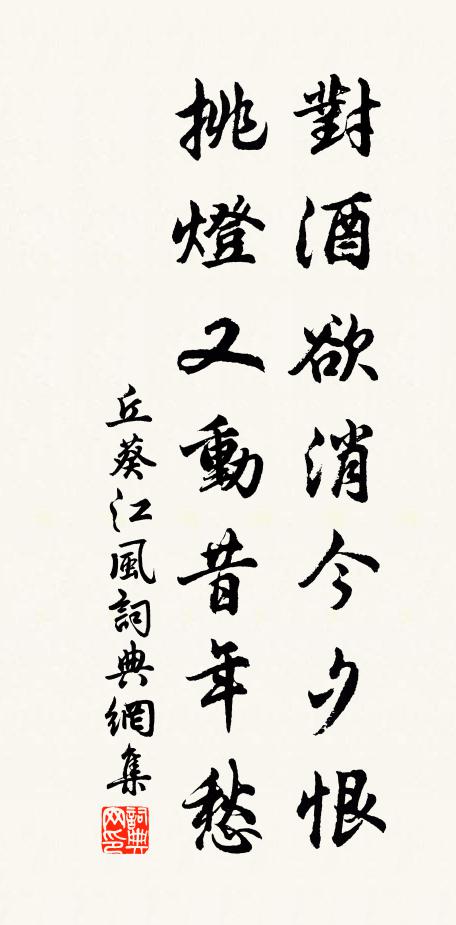 對酒欲消今夕恨
挑燈又動昔年愁
丘葵江風詞典網集
詞典網印